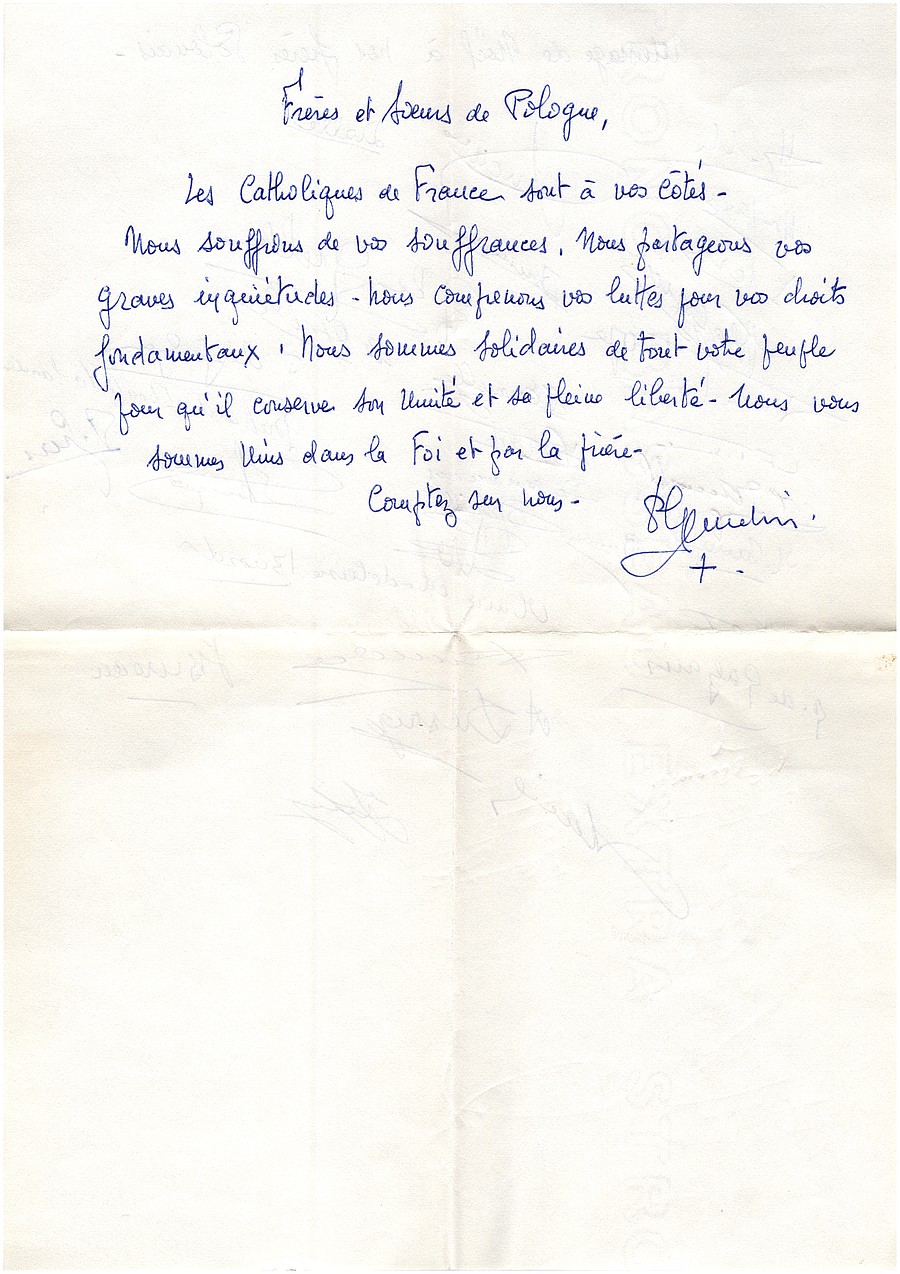 Frères et Sœurs de Pologne,
Les Catholiques de France sont à vos côtés -
Nous souffrons de vos souffrances. Nous partageons vos
graves inquiétudes - nous comprenons vos luttes pour vos droits
fondamentaux. Nous sommes solidaires de tout votre peuple
pour qu'il conserve son Unité et sa pleine liberté - Nous vous
sommes Unis dans la Foi et par la prière -
Comptez sur nous -
+ .